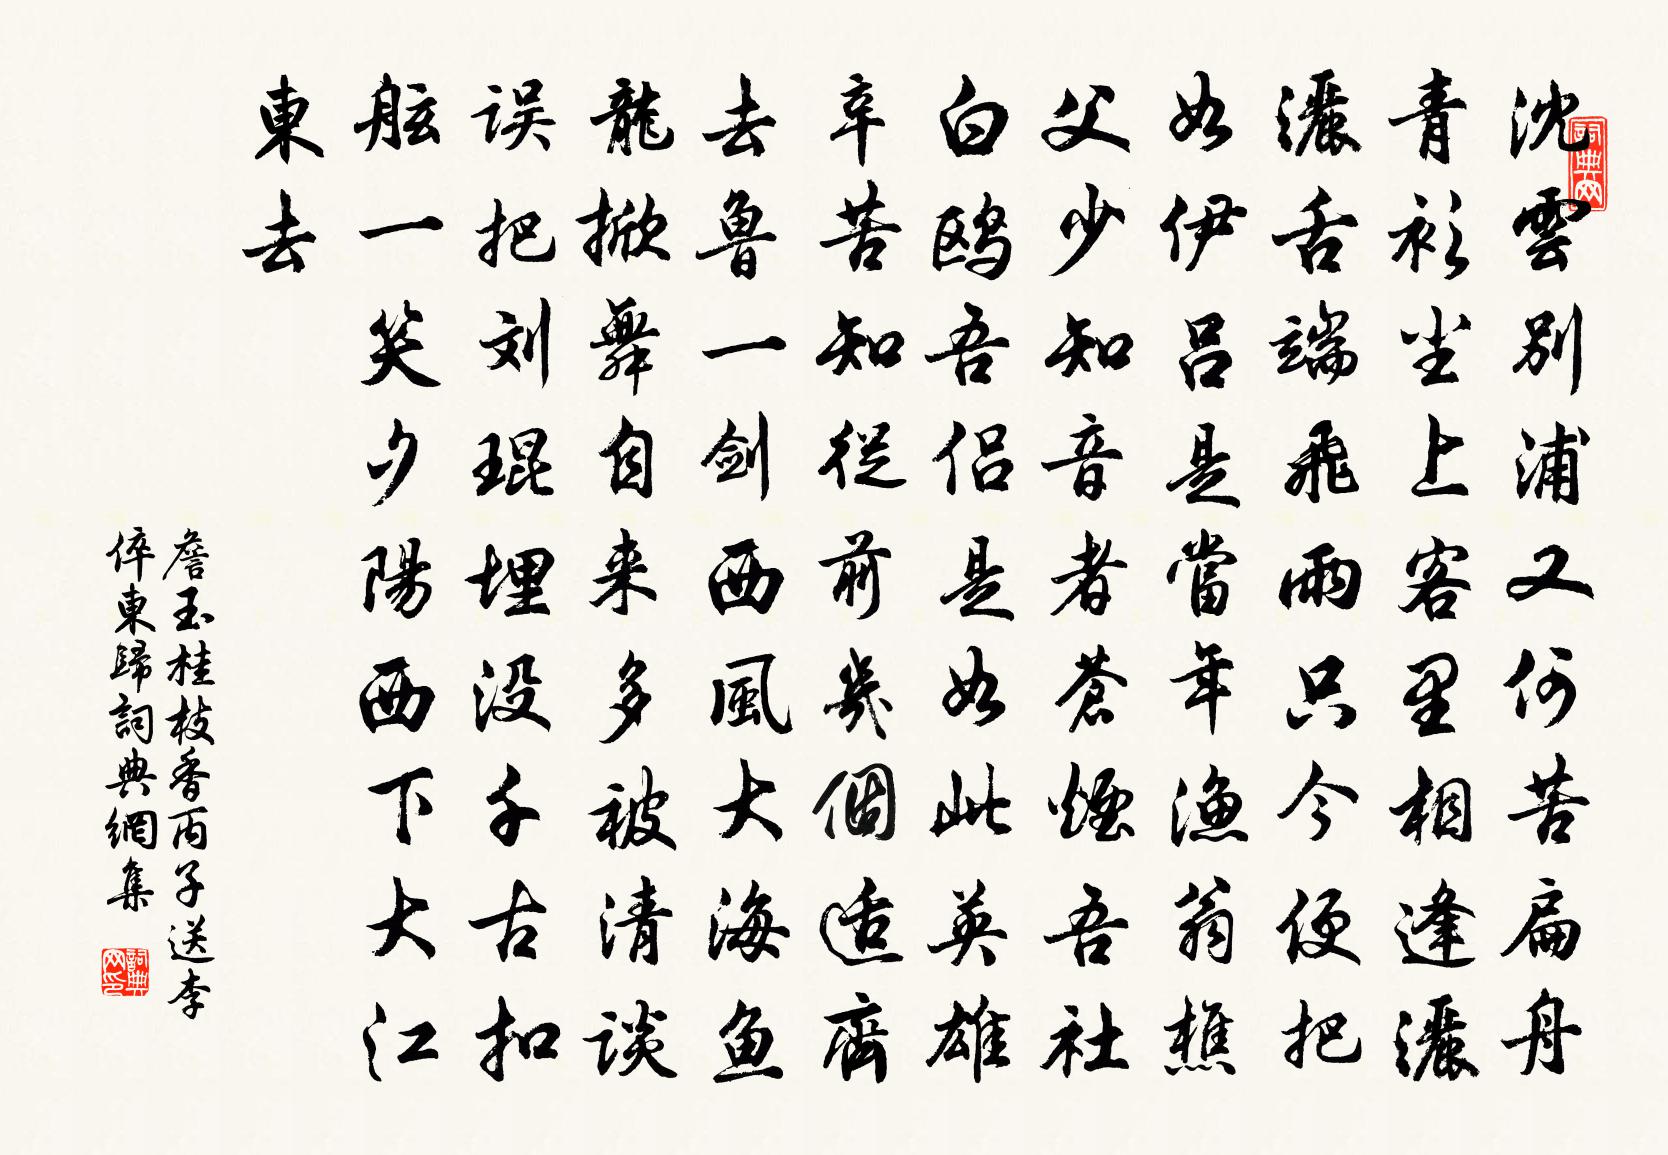 沈雲別浦又何苦扁舟
青衫尘上客里相逢灑
灑舌端飛雨只今便把
如伊呂是當年漁翁樵
父少知音者蒼煙吾社
白鸥吾侶是如此英雄
辛苦知從前幾個适齊
去鲁一劍西風大海鱼
龍掀舞自来多被清談
误把刘琨埋没千古扣
舷一笑夕陽西下大江
東去
詹玉桂枝香丙子送李
倅東歸詞典網集
詞典网
詞典网印